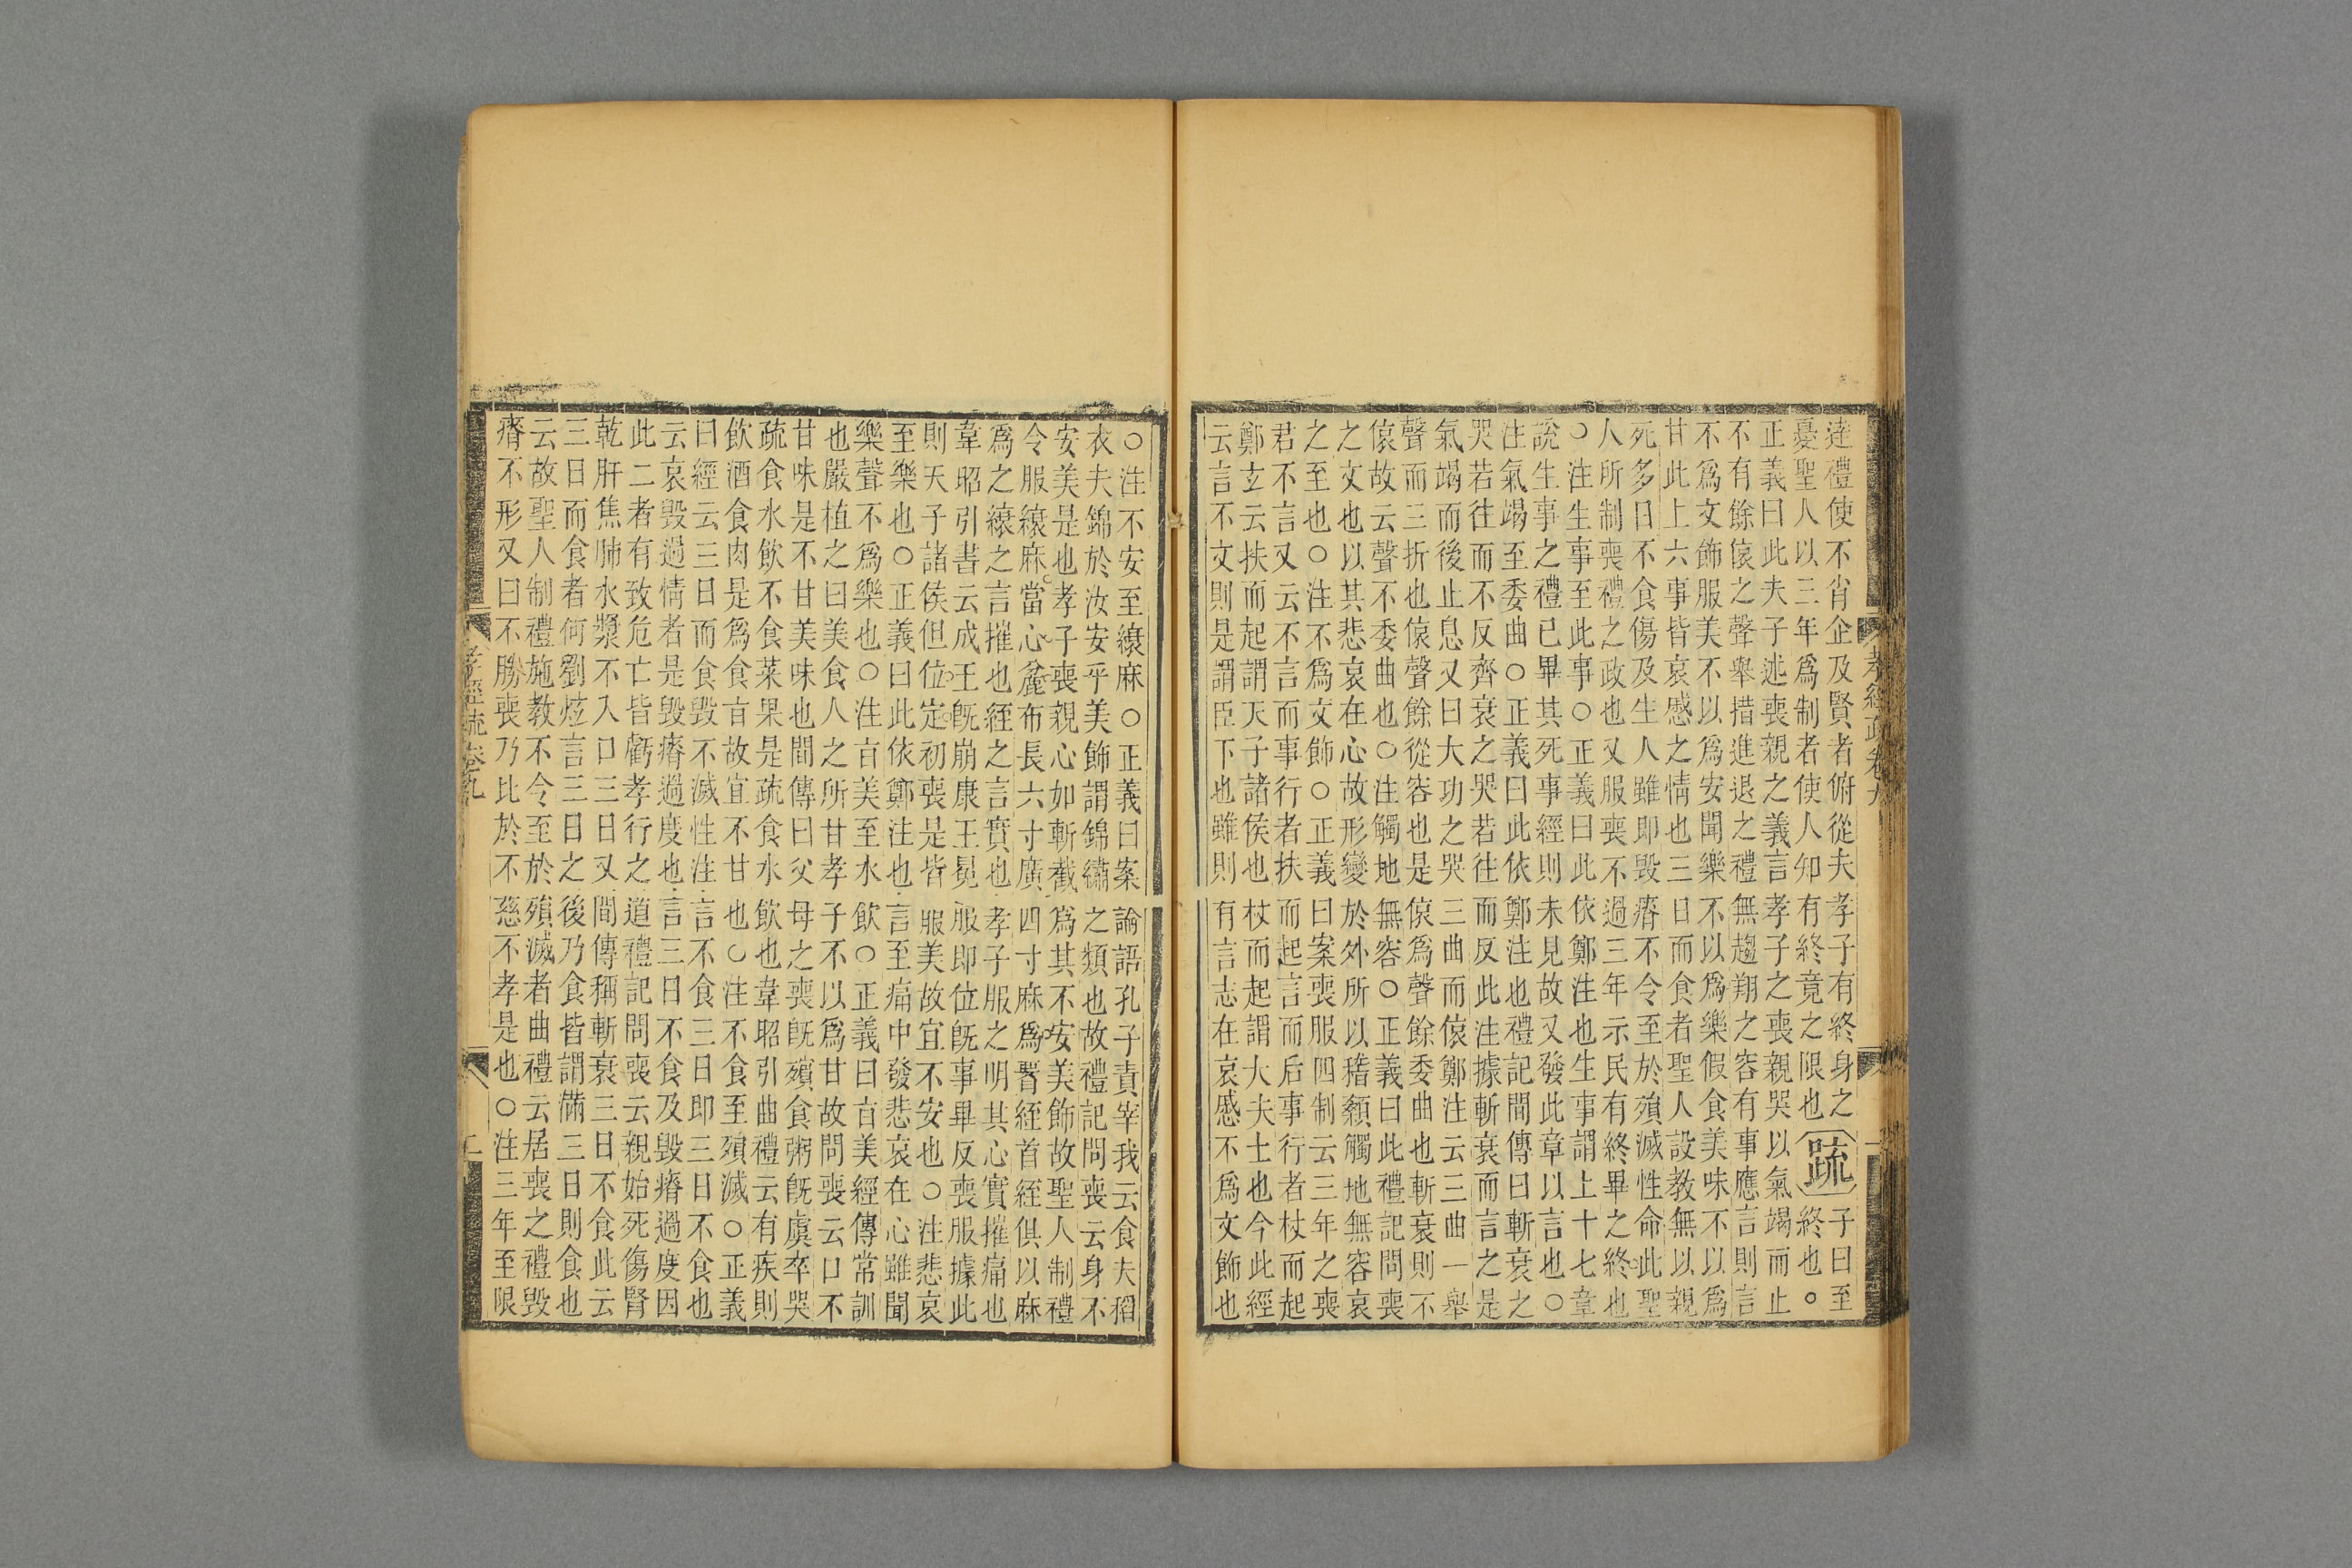 孝經疏卷九
達禮使不肖企及賢者俯從夫孝子有終身之
憂聖人以三年爲制者使人知有終竟之限也
疏
子曰至
終也○
正義曰此夫子述喪親之義言孝子之喪親哭以氣竭而止
不有餘偯之聲舉措進退之禮無趨翔之容有事應言則言
不爲文飾服美不以爲安聞樂不以爲樂假食美味不以爲
甘此上六事皆哀慼之情也三日而食者聖人設教無以親
死多日不食傷及生人雖即毀瘠不令至於殞滅性命此聖
人所制喪禮之政也又服喪不過三年示民有終畢之終也
○注生事至此事○正義曰此依鄭注也生事謂上十七章
說生事之禮已畢其死事經則未見故又發此章以言也○
注氣竭至委曲○正義曰此依鄭注也禮記間傳曰斬衰之
哭若往而不反齊衰之哭若往而反此注據斬衰而言之是
氣竭而後止息又曰大功之哭三曲而偯鄭注云三曲一舉
聲而三折也偯聲餘從容也是偯爲聲餘委曲也斬衰則不
偯故云聲不委曲也○注觸地無容○正義曰此禮記問喪
之文也以其悲哀在心故形變於外所以稽顙觸地無容哀
之至也○注不爲文飾○正義曰案喪服四制云三年之喪
君不言又云不言而事行者扶而起言而后事行者杖而起
鄭玄云扶而起謂天子諸侯也杖而起謂大夫士也今此經
云言不文則是謂臣下也雖則有言志在哀慼不爲文飾也
○注不安至縗麻○正義曰案論語孔子責宰我云食夫稻
衣夫錦於汝安乎美飾謂錦繡之類也故禮記問喪云身不
安美是也孝子喪親心如斬截爲其不安美飾故聖人制禮
令服縗麻當心麄布長六寸廣四寸麻爲署絰首絰俱以麻
爲之縗之言摧也絰之言實也孝子服之明其心實摧痛也
韋昭引書云成王旣崩康王冕服即位旣事畢反喪服據此
則天子諸侯但位定初喪是皆服美故宜不安也○注悲哀
至樂也○正義曰此依鄭注也言至痛中發悲哀在心雖聞
樂聲不爲樂也○注㫖美至水飲○正義曰㫖美經傳常訓
也嚴植之曰美食人之所甘孝子不以爲甘故問喪云口不
甘味是不甘美味也間傳曰父母之喪旣殯食粥旣虞卒哭
疏食水飲不食菜果是疏食水飲也韋昭引曲禮云有疾則
飲酒食肉是爲食㫖故宜不甘也○注不食至殞滅○正義
曰經云三日而食毀不滅性注言不食三日即三日不食也
云哀毀過情者是毀瘠過度也言三日不食及毀瘠過度因
此二者有致危亡皆虧孝行之道禮記問喪云親始死傷腎
乾肝焦肺水漿不入口三日又間傳稱斬衰三日不食此云
三日而食者何劉炫言三日之後乃食皆謂滿三日則食也
云故聖人制禮施教不令至於殞滅者曲禮云居喪之禮毀
瘠不形又曰不勝喪乃比於不慈不孝是也○注三年至限
孝經疏卷九
二